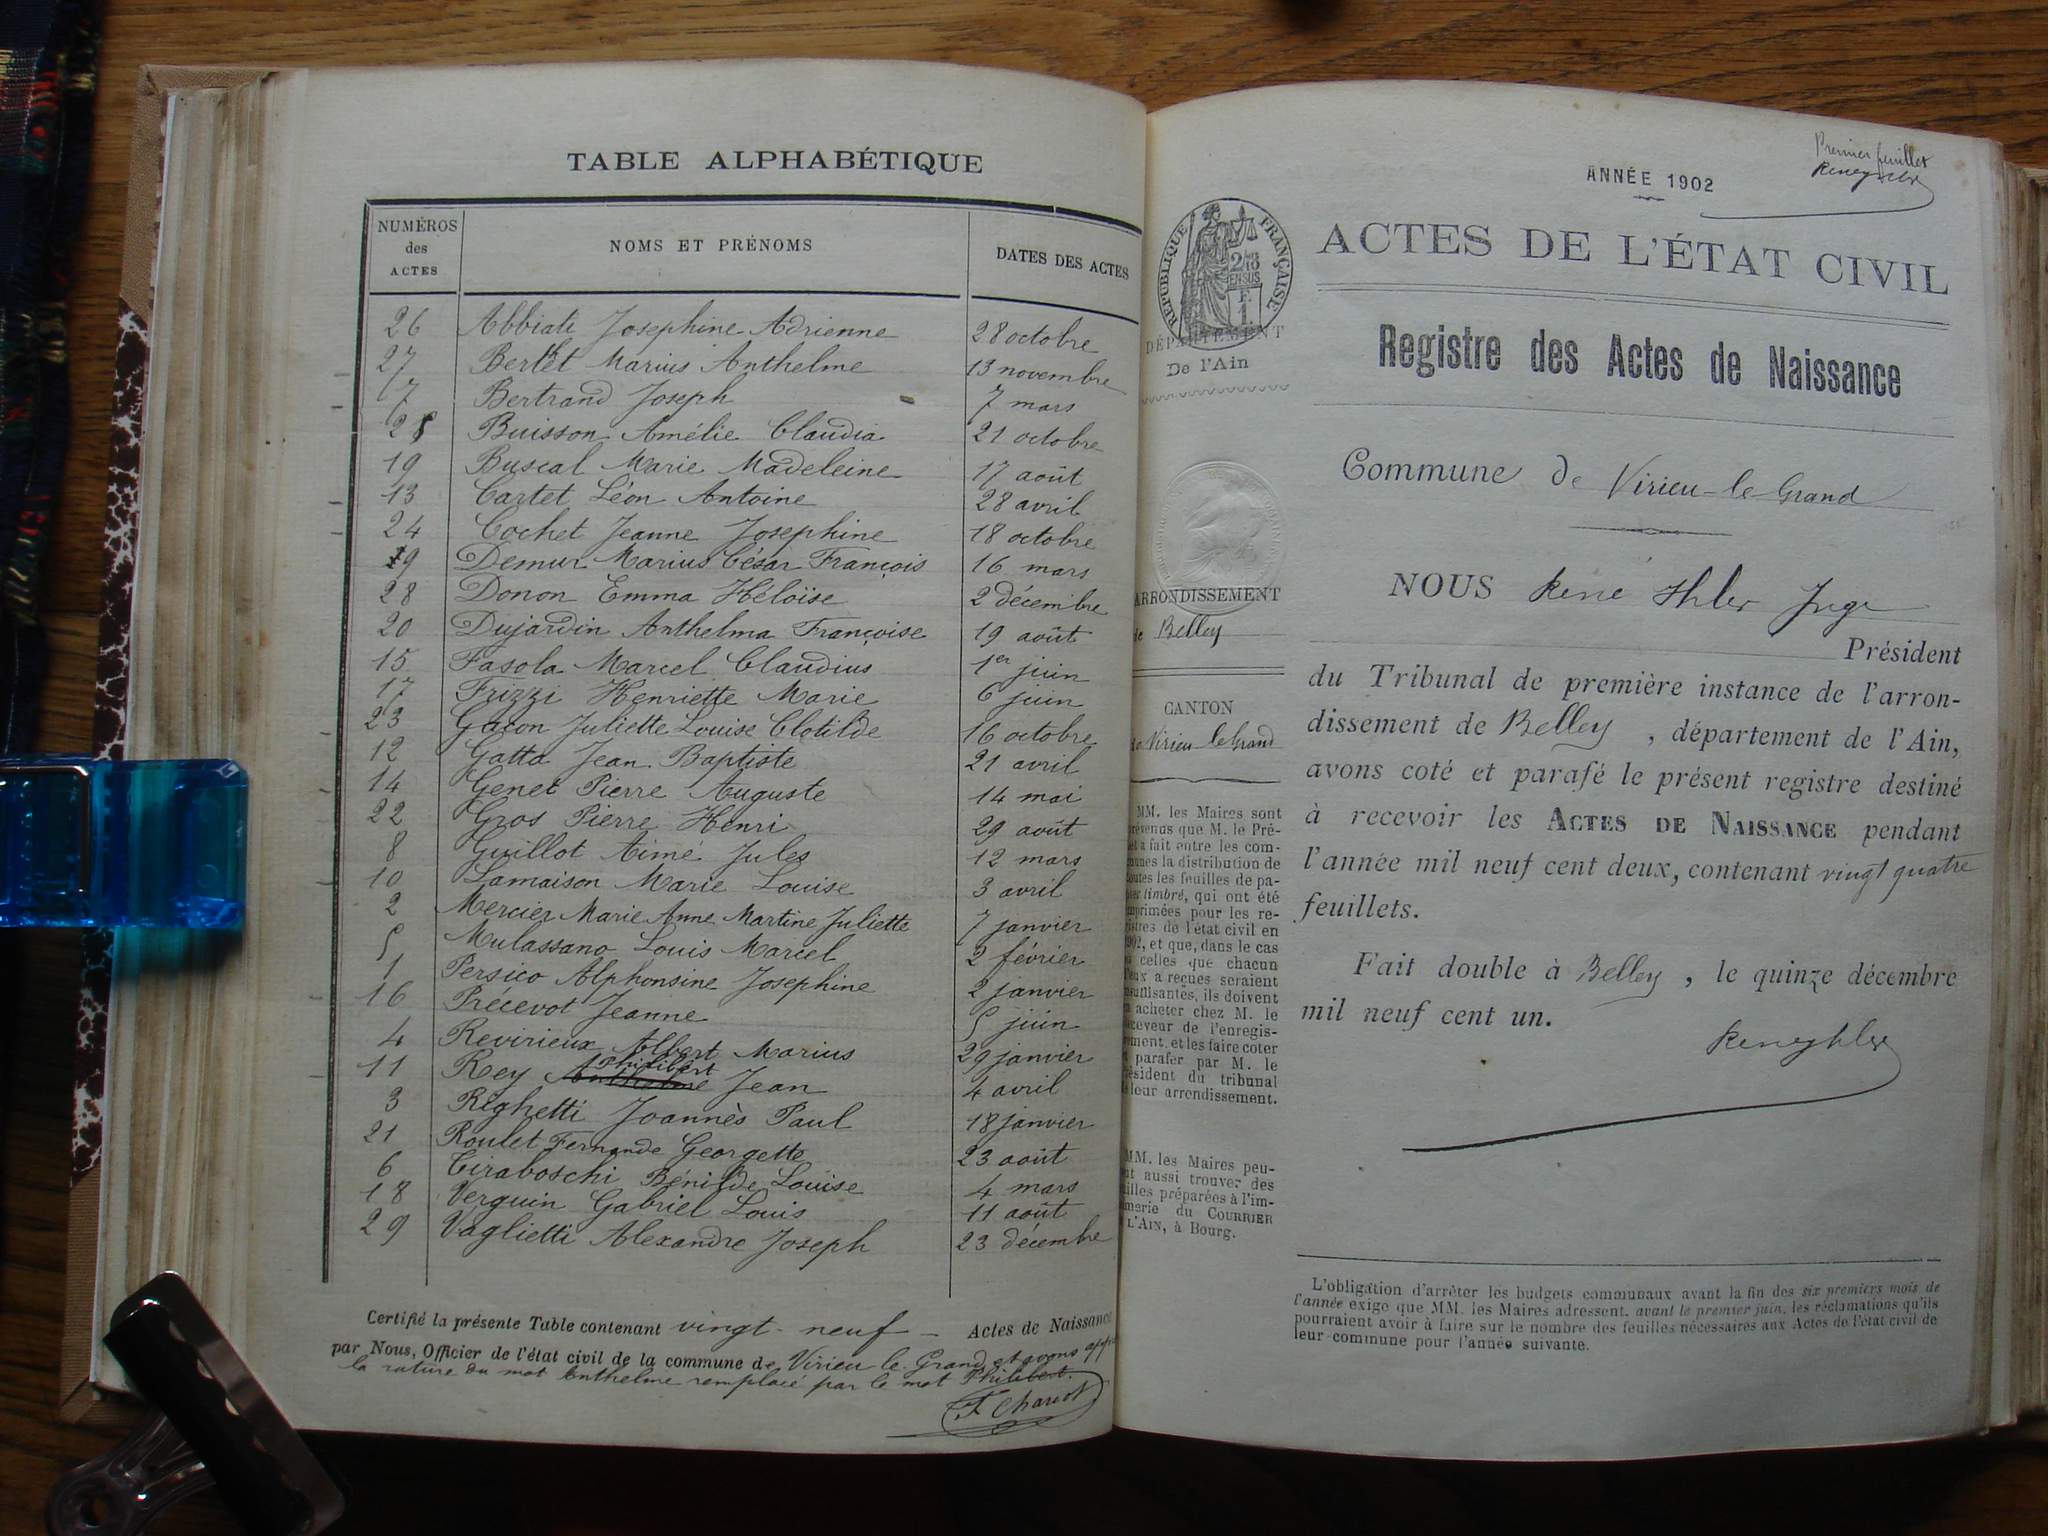 TABLE ALPHABÉTIQUE
NUMÉROS des ACTES NOMS ET PRÉNOMS DATES DES ACTES
26 Abbiati Josephine Adrienne 28 octobre
27 Bertet Marius Anthelme 13 novembre
7 Bertrand Joseph 7 mars
25 Buisson Amélie Claudia 21 octobre
19 Buscal Marie Madeleine 17 août
13 Cartet Léon Antoine 28 avril
24 Cochet Jeanne Josephine 18 octobre
9 Demur Marius César François 16 mars
28 Donon Emma Héloïse 2 décembre
20 Dujardin Anthelma Françoise 19 août
15 Fasola Marcel Claudius 1er juin
17 Frizzi Henriette Marie 6 juin
23 Gacon Juliette Louise Clotilde 16 octobre
12 Gatta Jean Baptiste 21 avril
14 Genet Pierre Auguste 14 mai
22 Gros Pierre Henri 29 août
8 Guillot Aimé Jules 12 mars
10 Lamaison Marie Louise 3 avril
2 Mercier Marie Anne Martine Juliette 7 janvier
5 Mulassano Louis Marcel 2 février
1 Persico Alphonsine Josephine 2 janvier
16 Precevot Jeanne 5 juin
4 Revirieux Albert Marius 29 janvier
11 Rey Anthelme Philibert Jean 4 avril
3 Righetti Joannès Paul 18 janvier
21 Roulet Fernande Georgette 23 août
6 Tiraboschi Bénilde Louise 4 mars
18 Verguin Gabriel Louis 11 août
29 Vaglietti Alexandre Joseph 23 décembre
Certifié la présente Table contenant vingt-neuf Actes de Naissance
par Nous, Officier de l'état civil de la commune de Virieu le Grand et avons
la rature du mot Anthelme remplacé par le mot Philibert.
F. Charvot
Premier feuillet
ANNÉE 1902
ACTES DE L'ÉTAT CIVIL
RÉPUBLIQUE FRANÇAISE
DÉPARTEMENT
De l'Ain
Registre des Actes de Naissance
Commune de Virieu-le-Grand
ARRONDISSEMENT
de Belley
CANTON
de Virieu le Grand
MM. les Maires sont
prévenus que M. le Pré-
fet a fait entre les com-
munes la distribution de
toutes les feuilles de pa-
pier timbré, qui ont été
imprimées pour les re-
gistres de l'état civil en
1902, et que, dans le cas
où celles que chacun
d'eux a reçues seraient
insuffisantes, ils doivent
en acheter chez M. le
Receveur de l'enregis-
trement, et les faire coter
et parafer par M. le
Président du tribunal
de leur arrondissement.
MM. les Maires peu-
vent aussi trouver des
feuilles préparées à l'im-
primerie du COURRIER
DE L'AIN, à Bourg.
NOUS René Ihler Juge
Président
du Tribunal de première instance de l'arron-
dissement de Belley, département de l'Ain,
avons coté et parafé le présent registre destiné
à recevoir les ACTES DE NAISSANCE pendant
l'année mil neuf cent deux, contenant vingt quatre
feuillets.
Fait double à Belley, le quinze décembre
mil neuf cent un.
L'obligation d'arrêter les budgets communaux avant la fin des six premiers mois de
l'année exige que MM. les Maires adressent, avant le premier juin, les réclamations qu'ils
pourraient avoir à faire sur le nombre des feuilles nécessaires aux Actes de l'état civil de
leur commune pour l'année suivante.